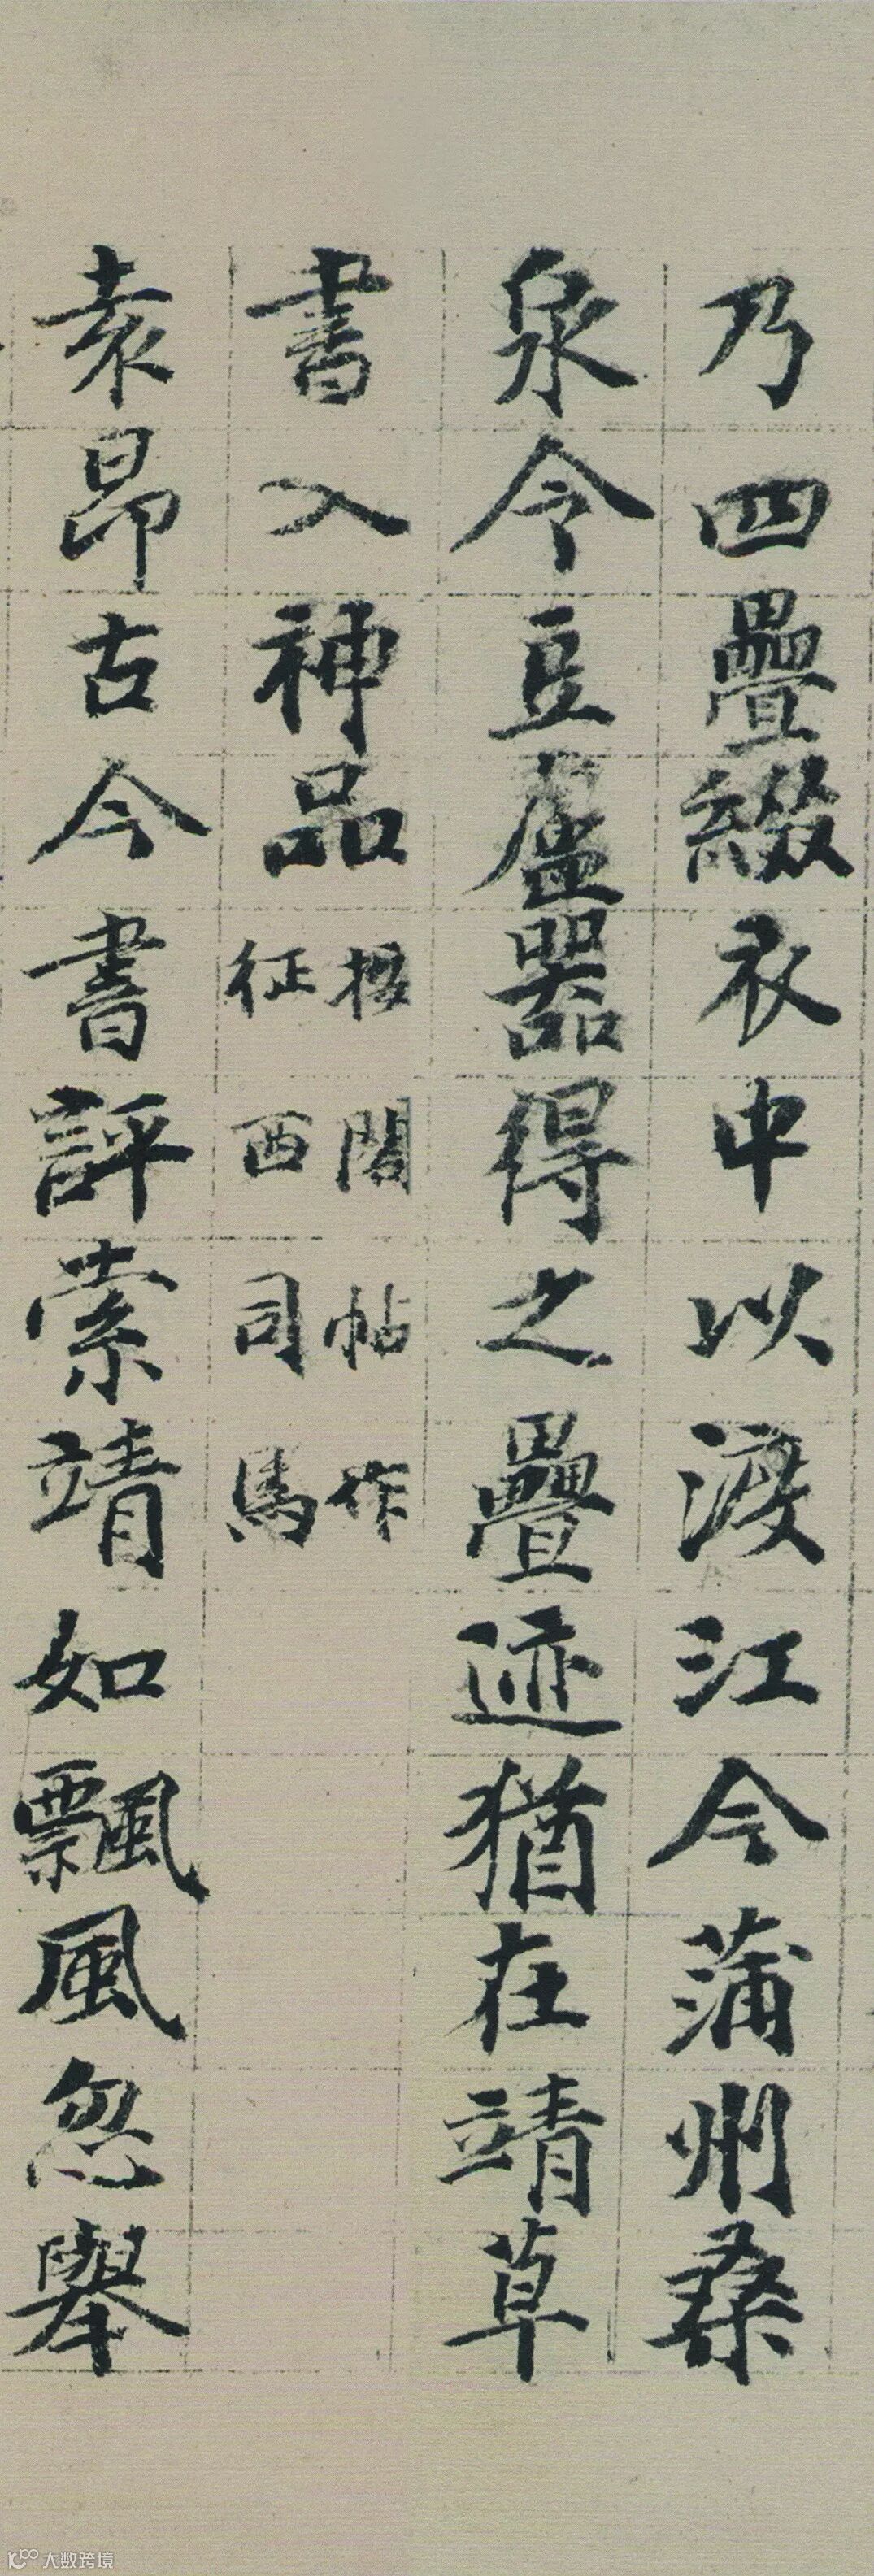 乃四疊綴衣中以渡江今蒲州桑
泉令豆盧器得之疊迹猶在靖草
書入神品
按閣帖作
征西司馬
袁昂古今書評索靖如飄風忽舉
大数跨境